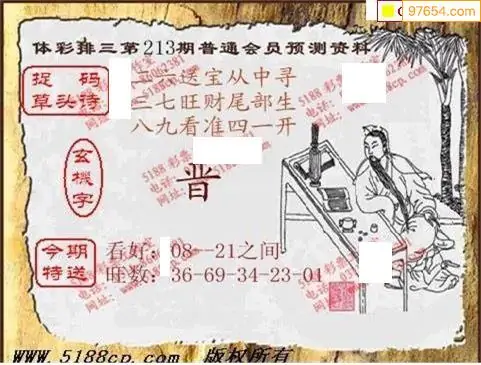 97654.com
体彩排三第213期普通会员预测资料
捉码
草头诗
送宝从中寻
三七旺财尾部生
八九看准四一开
玄機字
普
今期
特送
看好：08--21之间
旺数：36-69-34-23-01
5188 彩票
www.5188cp.com 版权所有